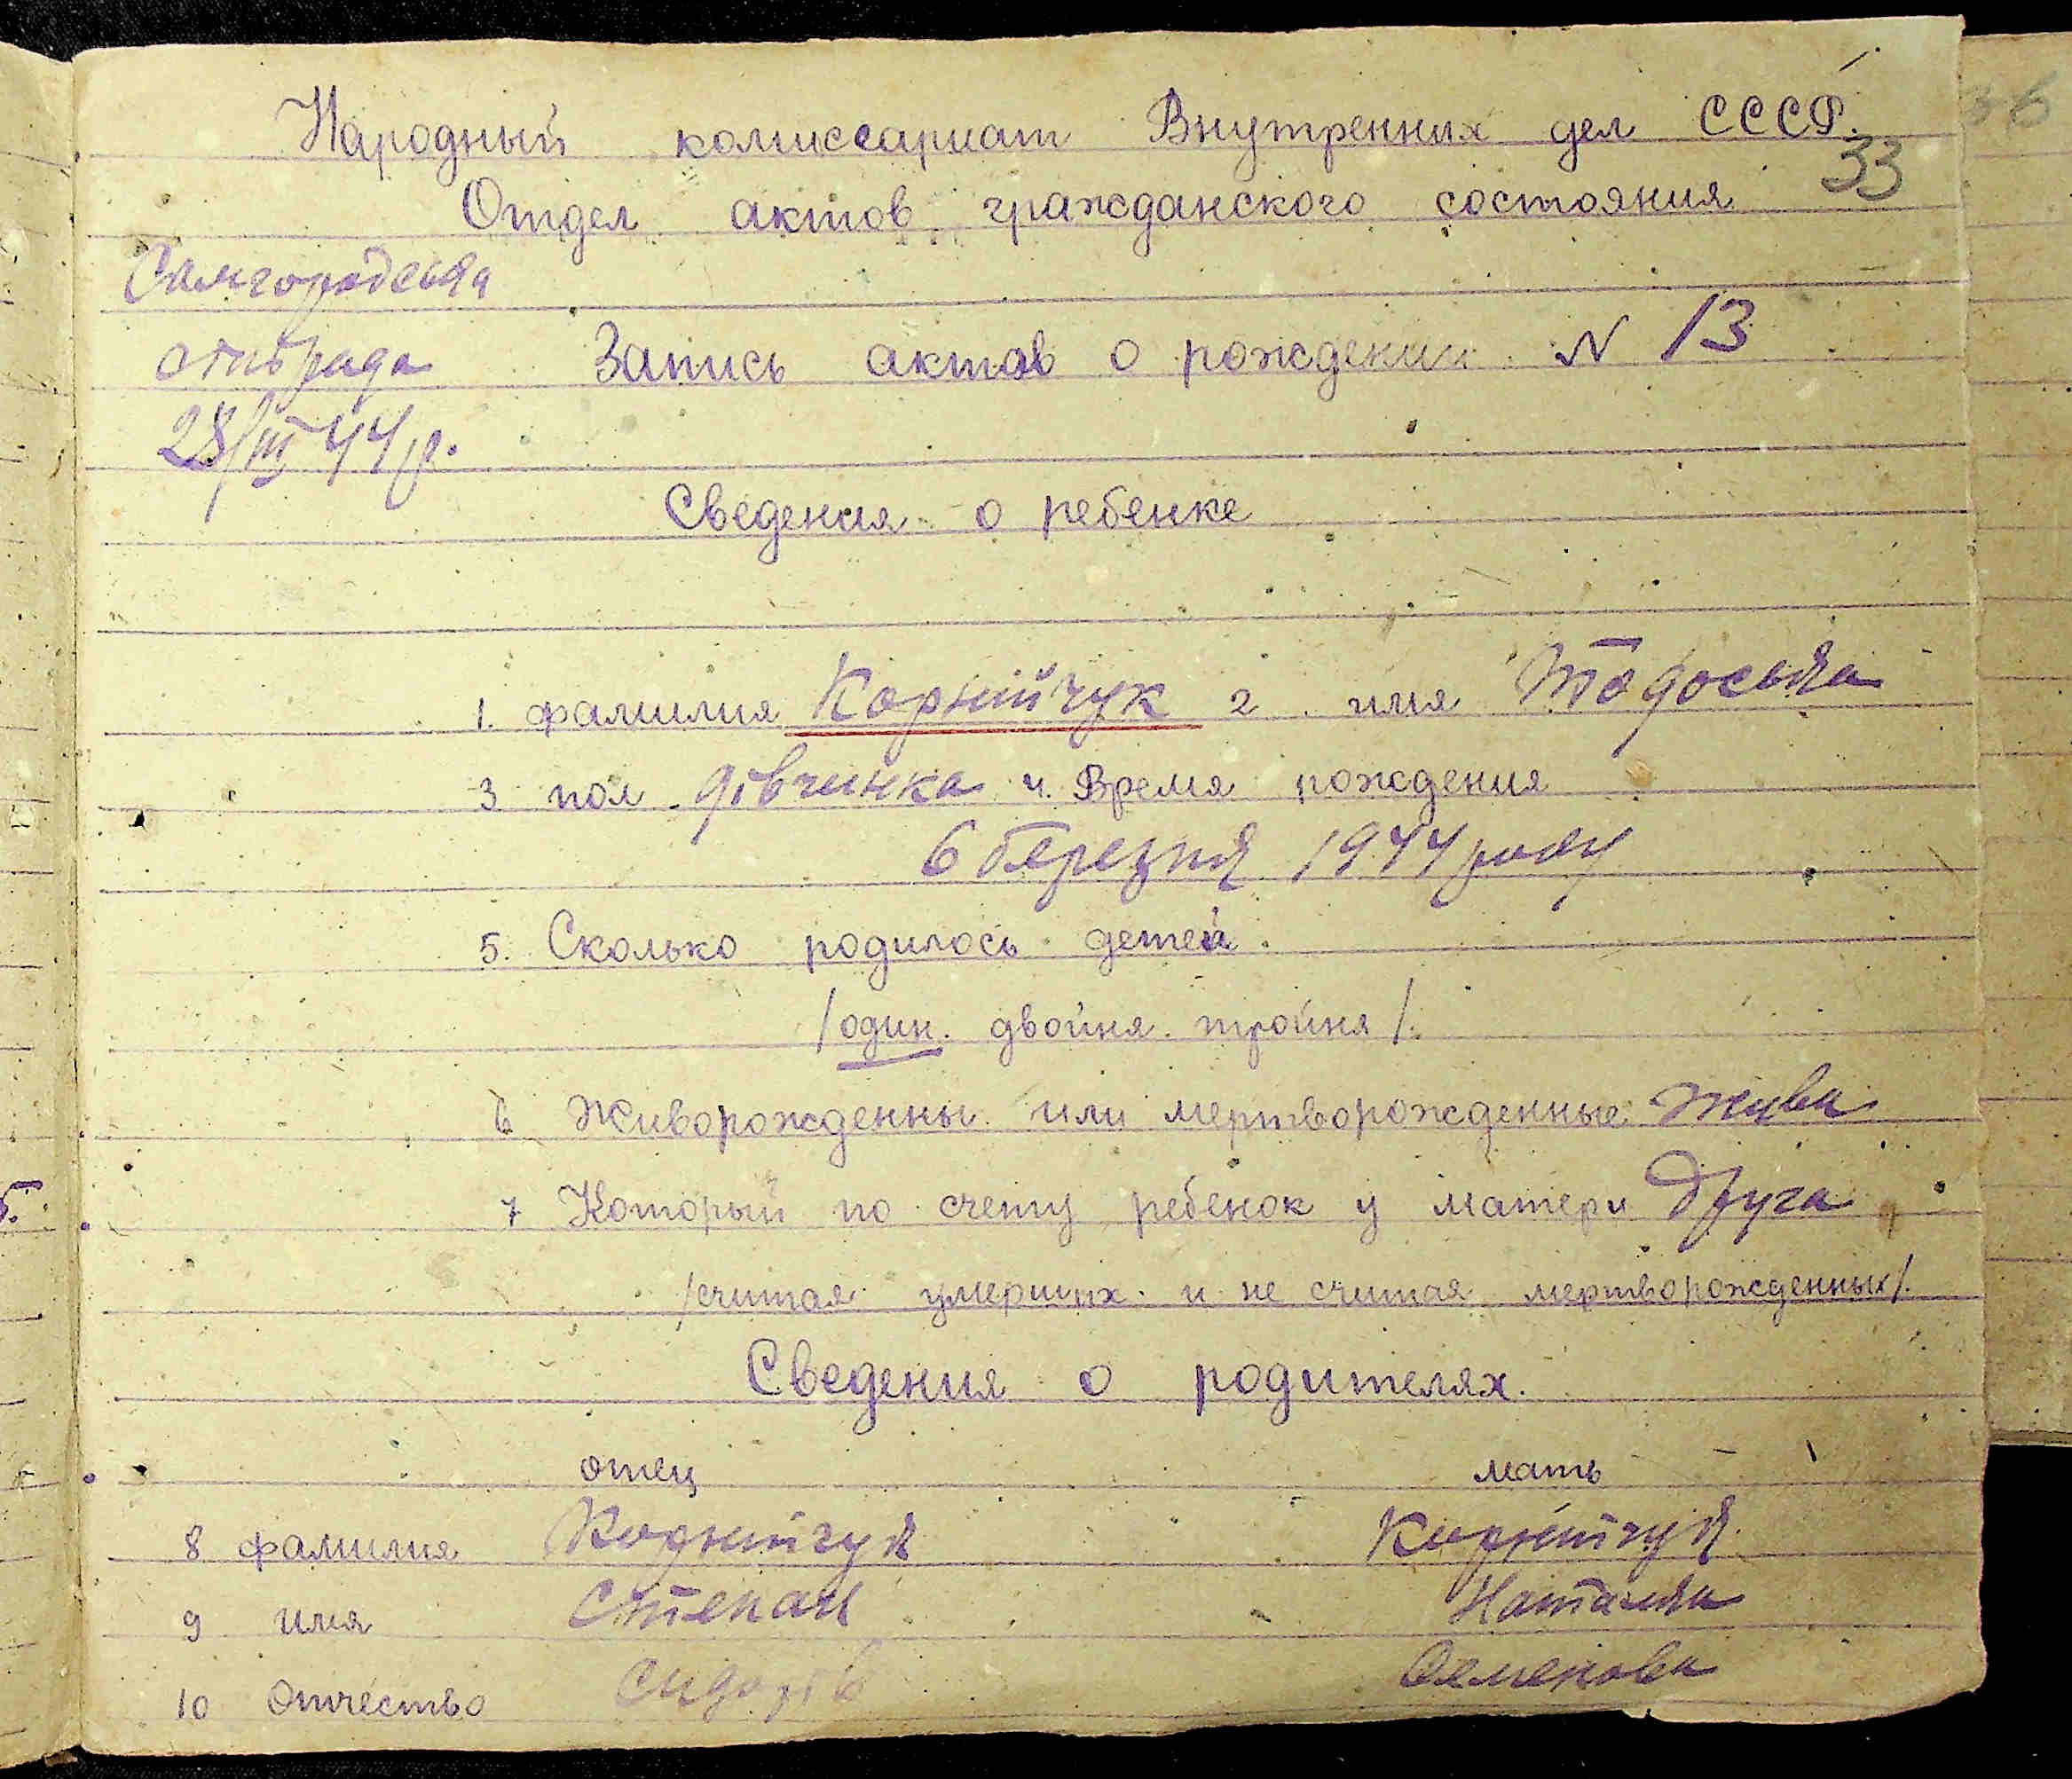 Народный комиссариат Внутренних дел СССР.
33
Отдел актов гражданского состояния
Самгородська
сільрада Запись актов о рождении N 13
28/III 44 р.
Сведения о ребенке
1. фамилия Корнійчук 2. имя Тодоська
3 пол дівчинка 4. Время рождения
6 березня 1944 року
5. Сколько родилось детей.
/один. двойня. тройня/.
6 Живорожденны или мертворожденные жива
7 Который по счету ребенок у матери друга
/считая умерших и не считая мертворожденных/.
Сведения о родителях.
отец мать
8 фамилия Корнийчук Корнійчук
9 имя Степан Наталка
10 Отчество Сидорів Семенова